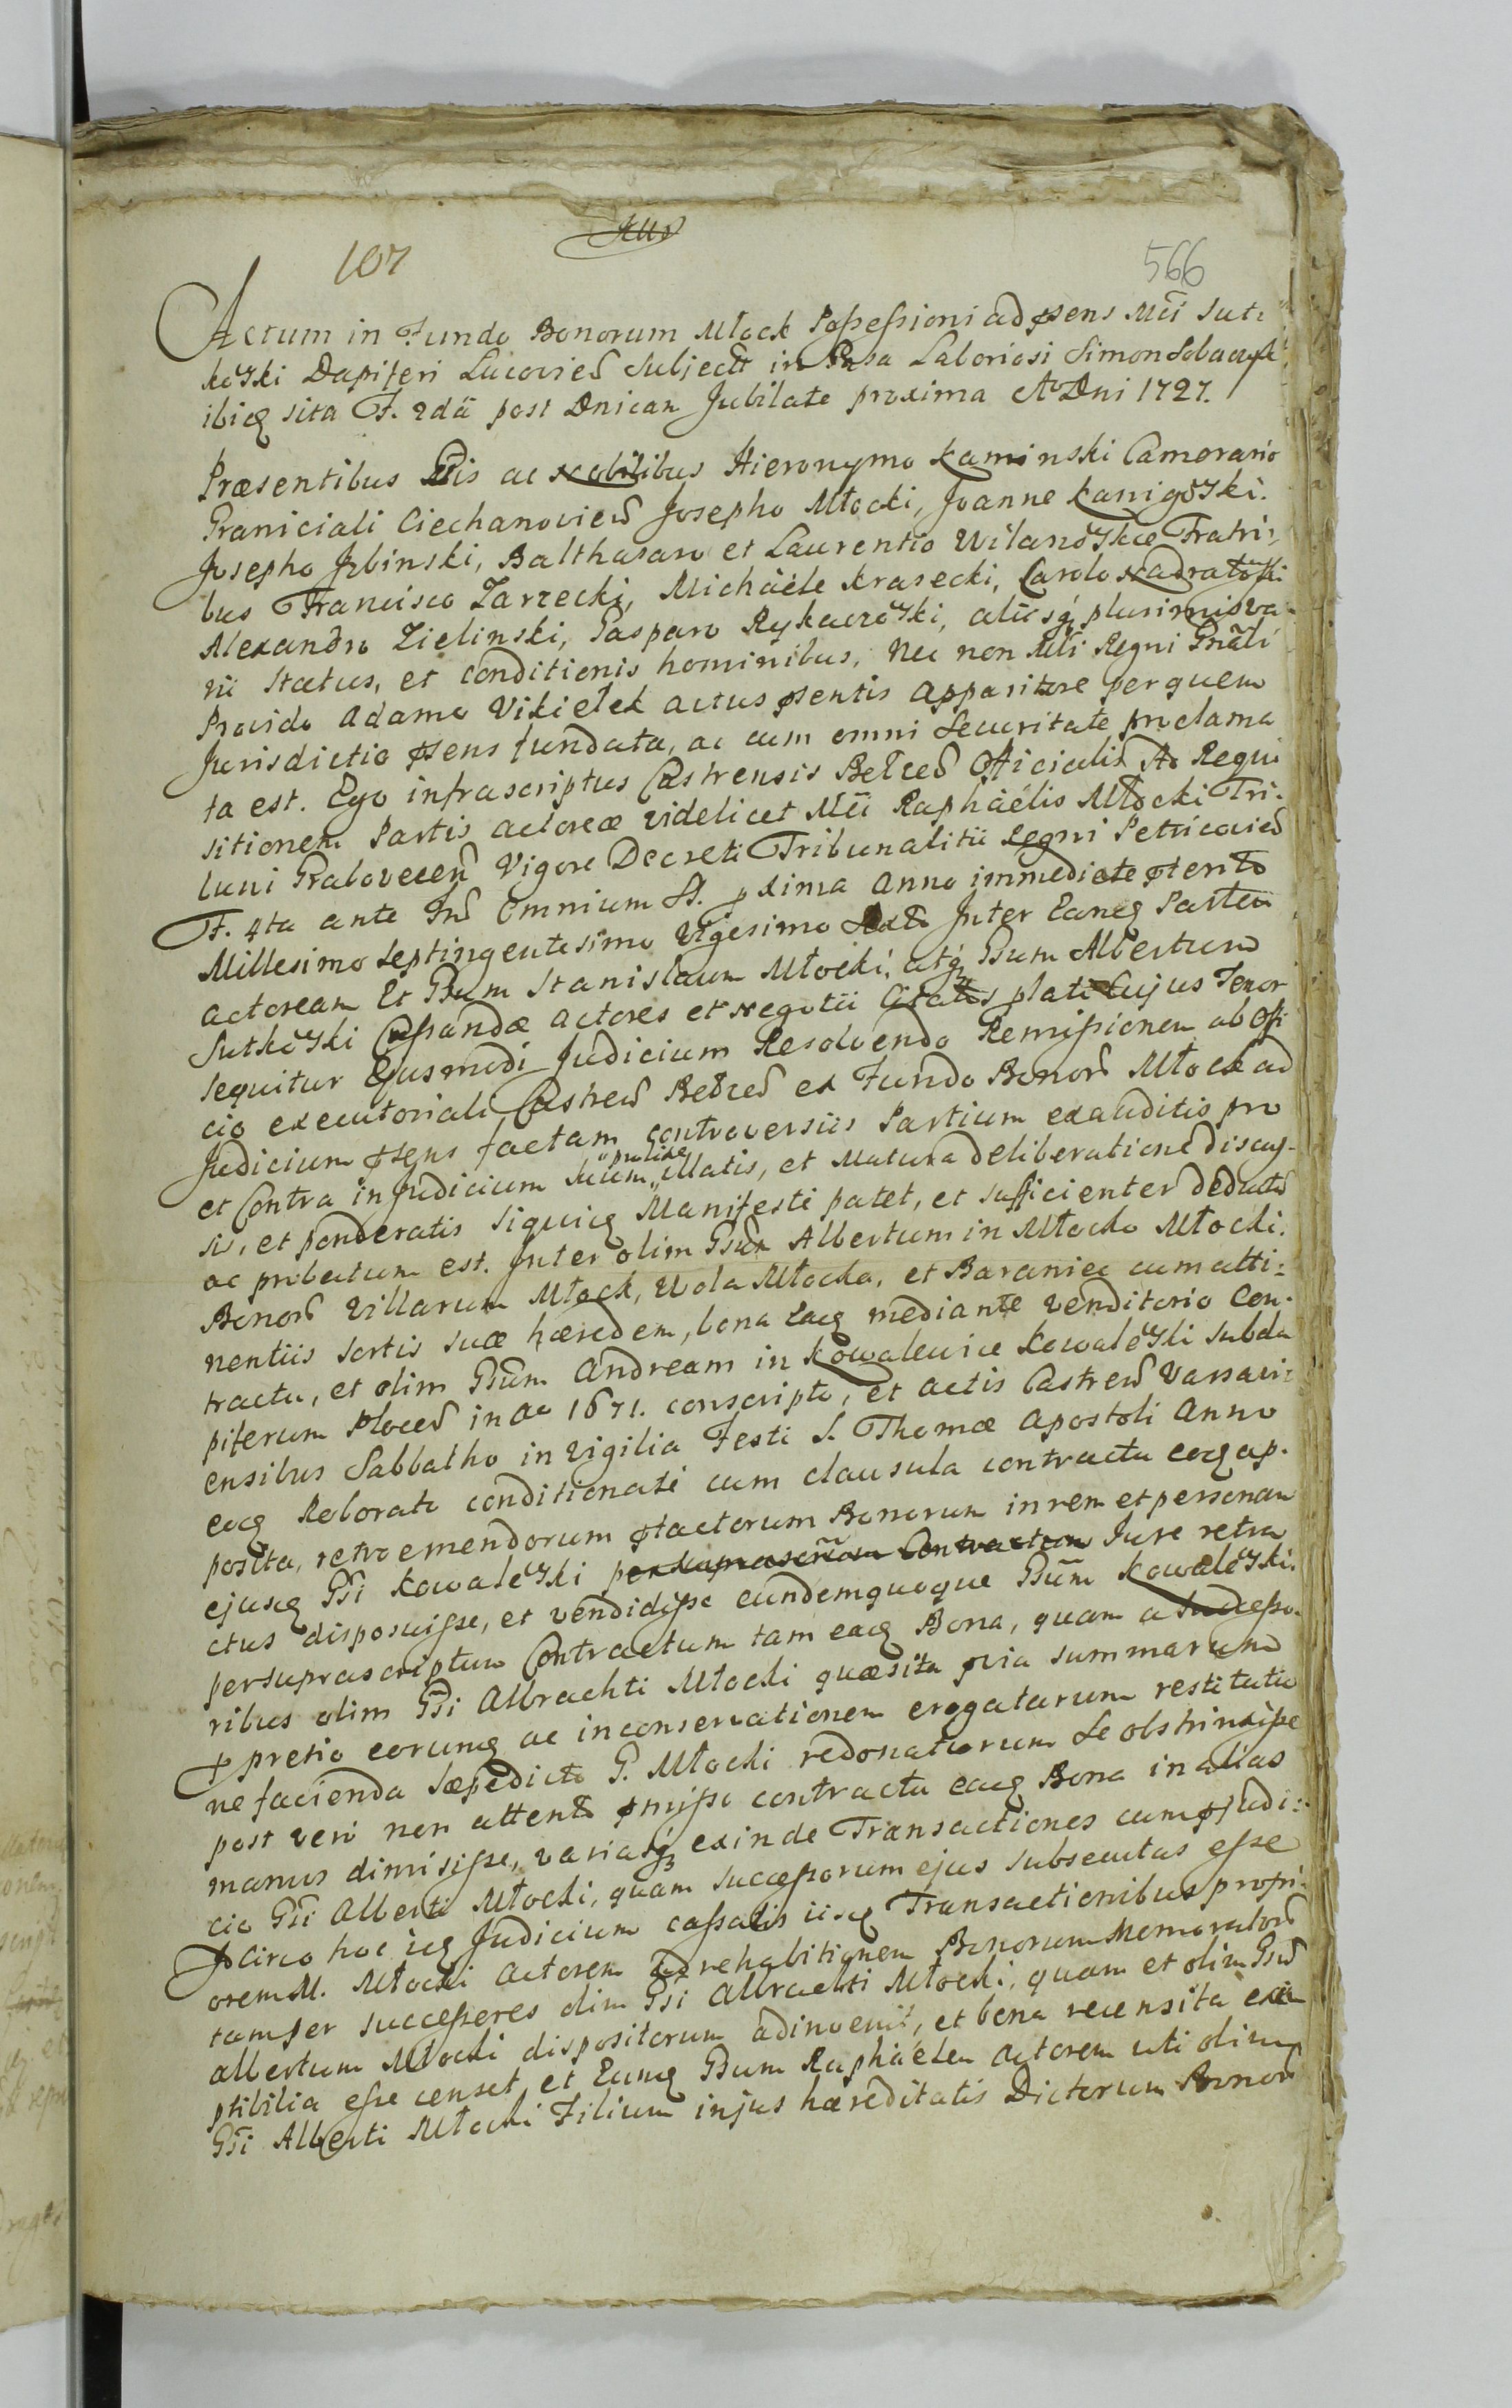 107
566
Actum in Fundo Bonorum Młock Possessioni ad psens Mci Sut-
kowski Dapiferi Lucovien Subject in Casa Laboriosi Simon
ibiq sita F. 2dā post Dnicam Jubilate proxima Ao Dni 1727.
Præsentibus Gsis ac Nobilibus Hieronymo Kaminski Camerario
Graniciali Ciechanovien Josepho Młocki, Joanne Kanigowski.
Josepho Jrbinski, Balthasare et Laurentio Wilanowskie Fratri-
bus Francisco Zarzecki, Michaële Krasecki, Carolo
Alexandro Zielinski, Gasparo Rykaczowski, aliisq plurimis va-
rii Status, et conditionis hominibus, Nec non Mli Regni Gnāli
Provido Adamo Vikielek actus psentis apparitore per quem
Jurisdictio psens fundata, ac cum omni Securitate proclama
ta est. Ego infrascriptus Castrensis Belzen Officialis Ad Requi
sitionem Partis actoreæ videlicet Mci Raphaëlis Młocki Tri-
buni Grabovecen Vigore Decreti Tribunalitii Regni Petricovien
F. 4ta ante Fns Omnium SS. pxima Anno immediate pterito
Millesimo Septingentesimo Vigesimo Sexto Inter Eanq Partem
actoream Et Gsum Stanislaum Młocki, atq Gsum Albertum
Sutkowski Cassandæ actores et Negotii Citatos plati Cujus Tenor
sequitur Ejusmodi Judicium Resolvendo Remissionem ab Offi
cio executoriali Castren Belzen ex Fundo Bonorum Młock ad
Judicium psens factam, controversiis Partium exauditis pro
et Contra in Judicium suum prolixe illatis, et Matura deliberatione discus-
sis, et ponderatis siquiq Manifesti patet, et sufficienter deductu
ac probatum est. Inter olim Gsum Albertum in Młocko Młocki.
Bonor Villarum Młock, Wola Młocka, et Baraniec cum atti-
nentiis Sortis suæ hæredem, bona Eaq mediante venditorio Con-
tractu, et olim Gsum Andream in Kowalewice Kowalewski Subda
piferum Plocen in Ao 1671. conscripto, et actis Castren Varsavi-
ensibus Sabbatho in vigilia Festi S. Thomæ Apostoli Anno
eoq Roborato conditionate cum clausula contractu eoq ap-
posita, retro emendorum ptactorum Bonorum in rem et personam
ejusq Gsi Kowalewski per suprascriptum Contractum Jure retra
ctus disposuisse, et vendidisse eundemquoque Gsūm Kowalewski.
per suprascriptum Contractum tam eaq Bona, quam a Successo-
ribus olim Gsi Albrachti Młocki quæsita pvia summarum
p pretio eorunq ac in conservationem erogatarum restitutio
ne facienda sæpedicto G. Młocki redonaturum Se obstrinxisse
post vero non attento pmisso contractu eaq Bona in alias
manus dimisisse, variasq exinde Transactiones cum pjudi-
cio Gsi Alberti Młocki, quam successorum ejus subsecutas esse
Idcirco hoc iq Judicium cassatis iisq Transactionibus propri-
orem M. Młocki Actorem ad rehabitionem Bonorum Memorator
tam per successores olim Gsi Albrachti Młocki, quam et olim Gsum
Albertum Młocki dispositorum adinvenit, et bona recensita exem
ptibilia esse censet et Eunq Gsum Raphaëlem Actorem uti olim
Gsi Alberti Młocki Filium in jus hæreditatis Dictorum Bonor